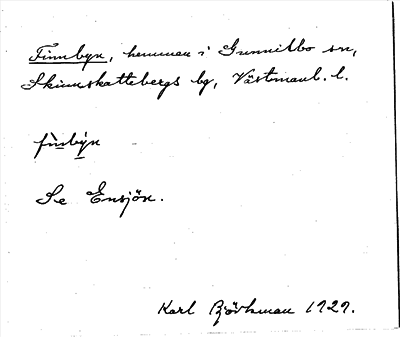 Finnbyn, hemman i Gunnilbo sn,
Skinnskattebergs bg, Västmanl. l.
fìnbýn
Se Ensjön.
Karl Björkman 1929.